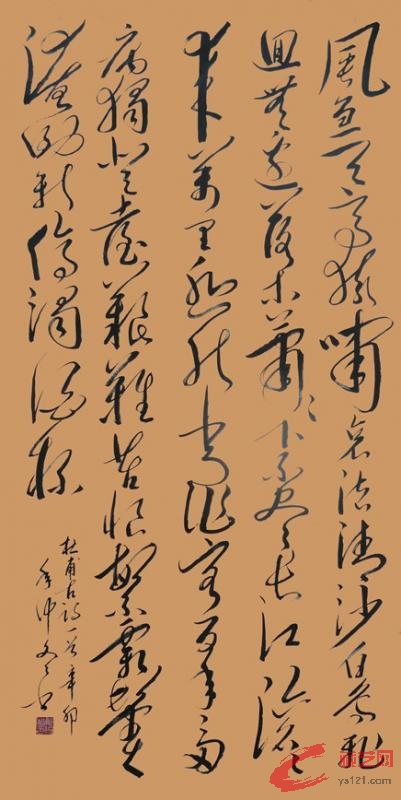 風急天高猿嘯哀渚清沙白鳥飛
迴無邊落木蕭〻下不盡長江滾〻
來萬里悲秋常作客百年多
病獨登臺艱難苦恨繁霜鬢
潦倒新停濁酒杯
杜甫古詩一首辛卯
年仲
演艺网
ys121.com